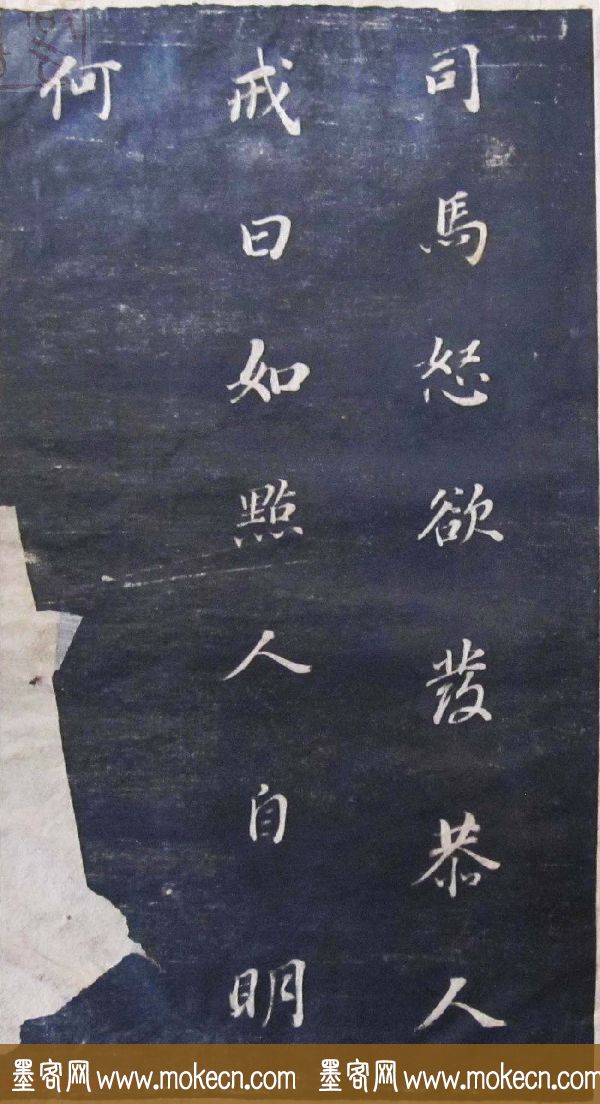 司馬怒欲發恭人
戒曰如點人自明
何
墨客网 www.mokecn.com 墨客网 www.mokecn.com